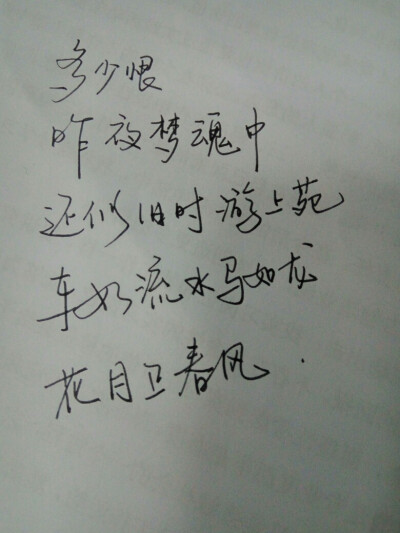 多少恨
昨夜梦魂中
还似旧时游上苑
车如流水马如龙
花月正春风.